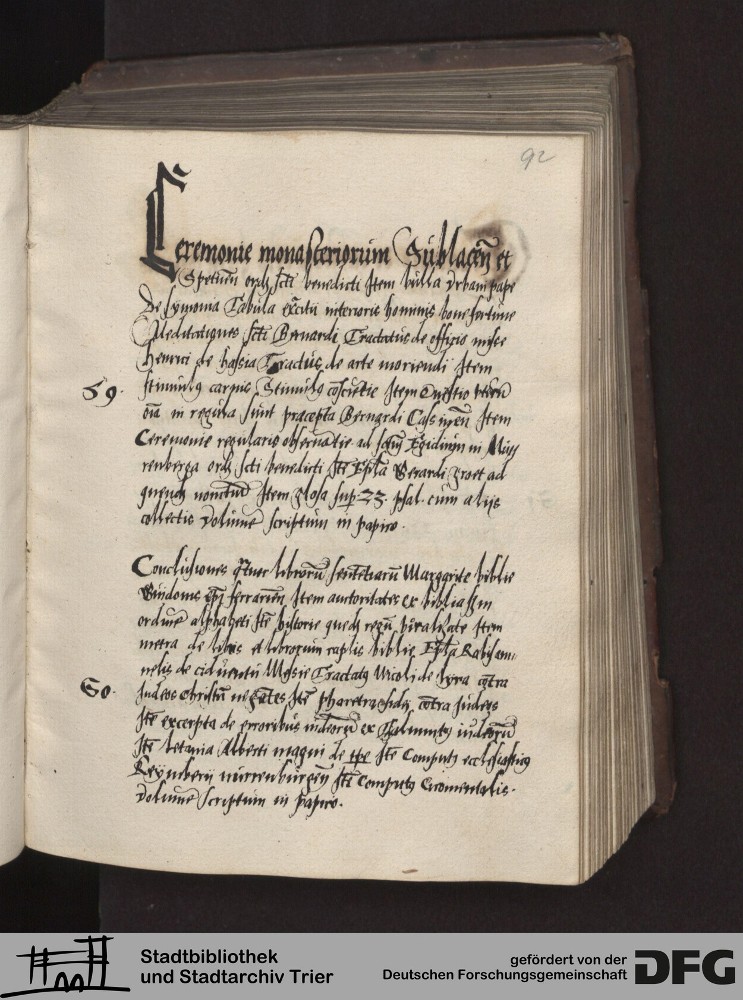 92
Ceremonie monasteriorum Sublaceñ et
Specueñ ordis scti benedicti Item bulla Urbani pape
De symonia Tabula exercitii interioris hominis bone fortune
Meditationes scti Bernardi Tractatus de officio misse
Henrici de hassia Tractus de arte moriendi Item
59. stimulus carnis Stimulus conscientie Item Questio utrum
oia in regula sunt præcepta Bernardi Item
Ceremonie regularis observantie ad sctum Egidium in Nur
renberga ordis scti benedicti Ite Epla Gerardi groet ad
quendam Item glosa sup. 23. psal. cum alijs
collectis volumine scriptum in papiro.
Conclusiones quatuor librorum sententiarum Margarite biblie
Guidonis epi ferrarien Item auctoritates ex biblia scdm
ordinem alphabeti Ite historie quedam regum Item
metra de libris et librorum caplis biblie Epla Rabi sam
uelis de adventu Messie Tractatus Nicolai de lyra contra
60. Judeos Christum negantes Ite pharetra fidei contra Judeos
Ite excerpta de erroribus iudeorum ex Thalmut iudeorum
Ite letania Alberti magni de tpe Ite Computus ecclesiasticus
Reynberii nurrenburgen Ite Computus Cromentalis.
volumine scriptum in papiro.
Stadtbibliothek
und Stadtarchiv Trier
gefördert von der
Deutschen Forschungsgemeinschaft
DFG